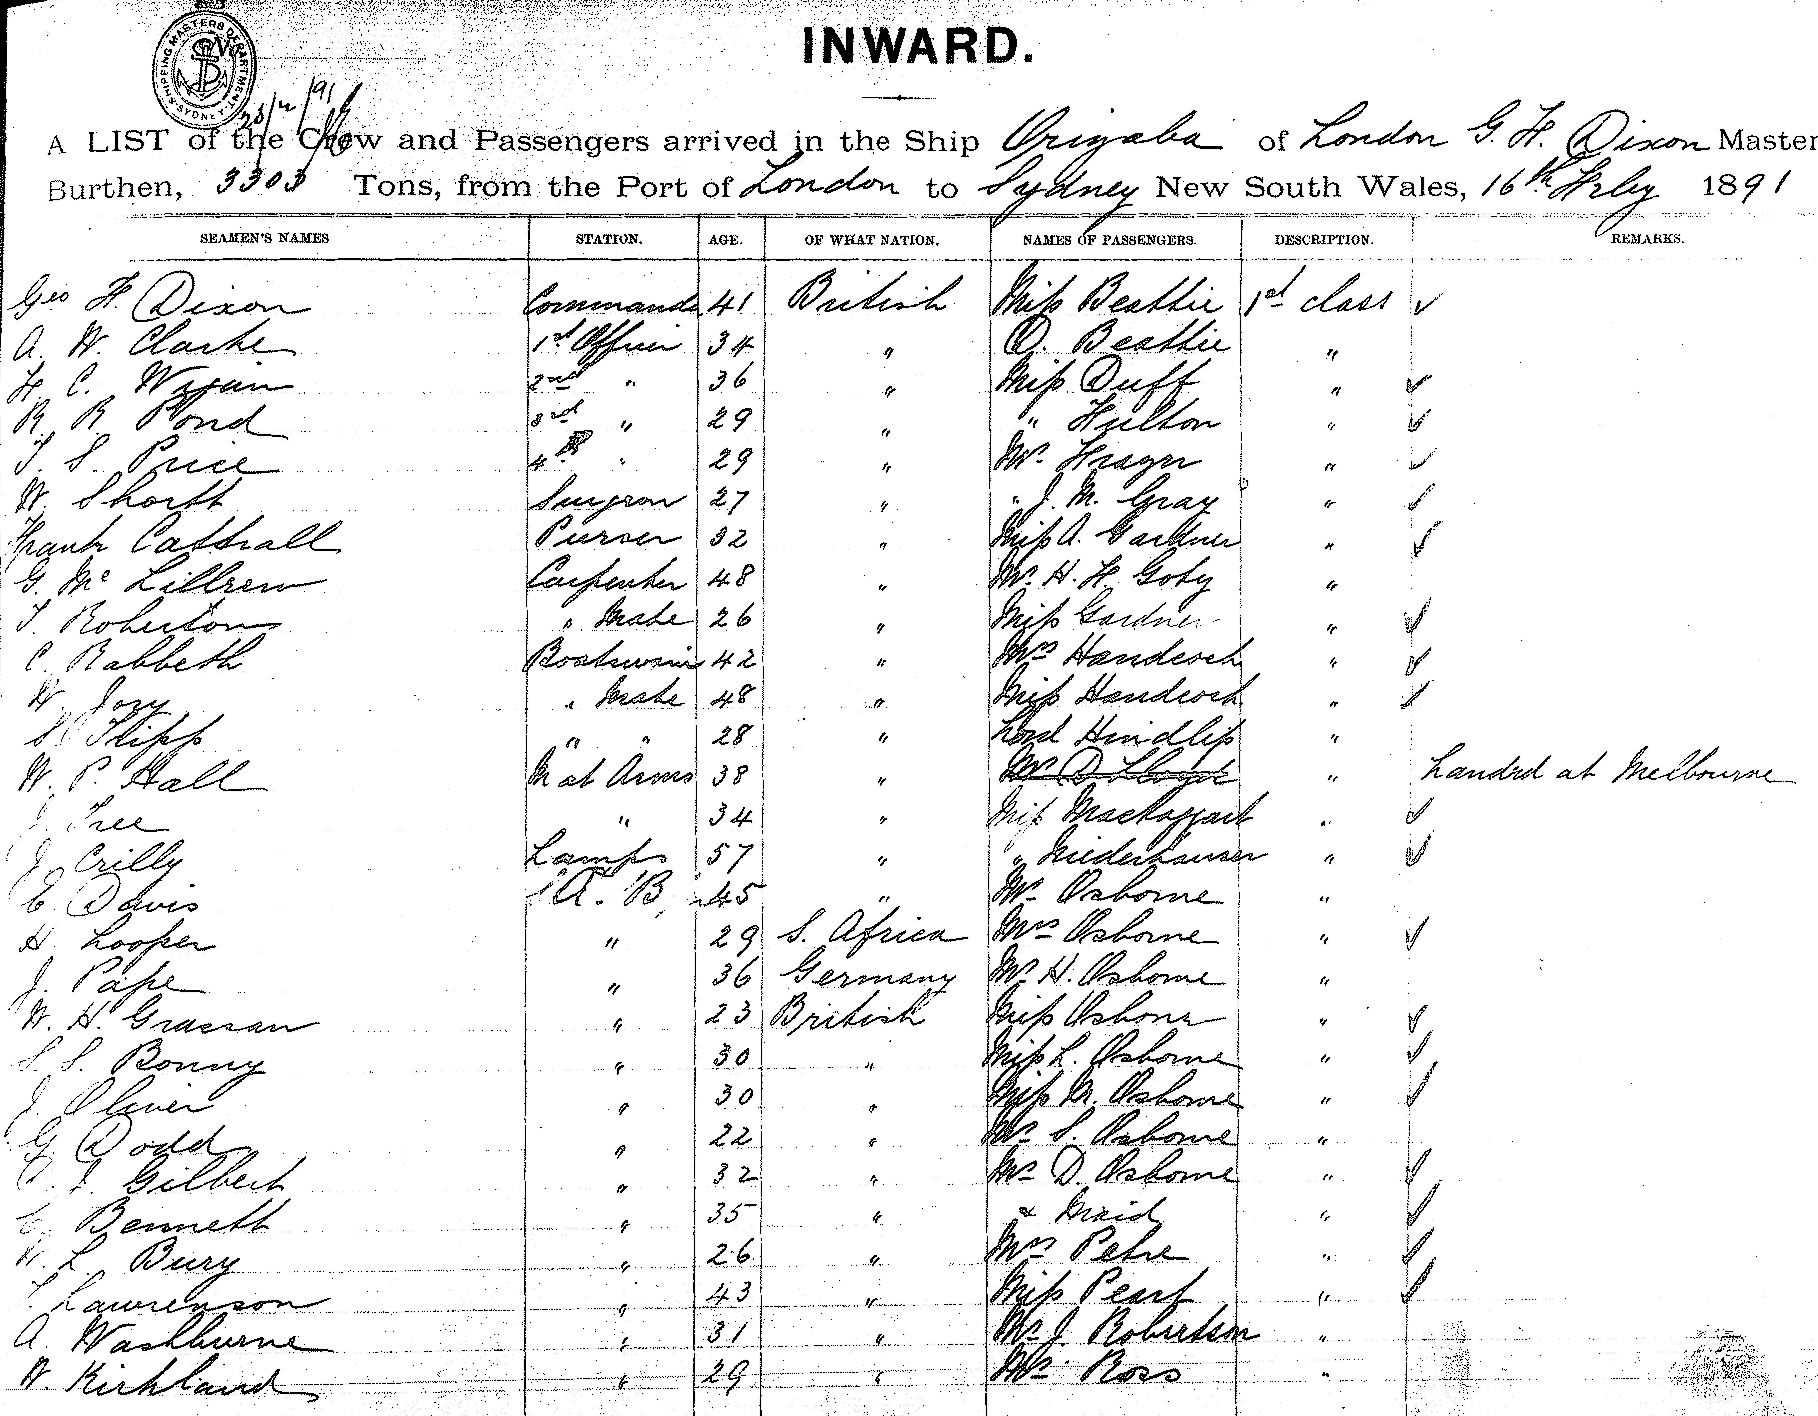 SHIPPING MASTERS DEPARTMENT SYDNEY
INWARD.
A LIST of the Crew and Passengers arrived in the Ship Orizaba of London G. F. Dixon Master
Burthen, 3303 Tons, from the Port of London to Sydney New South Wales, 16th Feby 1891
SEAMEN'S NAMES STATION. AGE. OF WHAT NATION. NAMES OF PASSENGERS. DESCRIPTION. REMARKS.
Geo F. Dixon Commander 41 British Miss Beattie 1st class ✓
A. W. Clarke 1st Officer 34 " D. Beattie "
H C. 2nd " 36 " Miss Duff " ✓
R R Pond 3rd " 29 " " Hulton " ✓
T. S. Price 4th " 29 " Mr. Frazer " ✓
W Shortt Surgeon 27 " " J. M. Gray " ✓
Frank Cattrall Purser 32 " Miss A. Gardner " ✓
G. Mc Carpenter 48 " Mr. H. F. Goby "
T. Roberton " Mate 26 " Miss Gardner " ✓
C. Rabbeth Boatswain 42 " Mrs Handcock " ✓
W Jory " Mate 48 " Miss Handcock " ✓
Flipp " " 28 " Lord Hindlip "
W. P. Hall M at Arms 38 " Mr D Lloyd " Landed at Melbourne
J. Tree " 34 " Miss Mactaggart " ✓
J. Crilly Lamps 57 " " Niederhauser " ✓
E Davis A. B. 45 " Mr Osborne "
H. Looper " 29 S. Africa Mrs Osborne " ✓
J. Pape " 36 Germany Mr H. Osborne "
W. H. Grassan " 23 British Miss Osborne " ✓
S. S. Bonny " 30 " Miss L. Osborne " ✓
J. Oliver " 30 " Miss M. Osborne " ✓
G Dodd " 22 " Mr S. Osborne "
Gilbert " 32 " Mr D. Osborne " ✓
C. Bennett " 35 " & Maid " ✓
W. L. Bury " 26 " Mrs Petre " ✓
Lawrenson " 43 " Miss Peart " ✓
A Washburne " 31 " Mr J. Robertson "
W. Kirkland " 29 " Mr Ross "